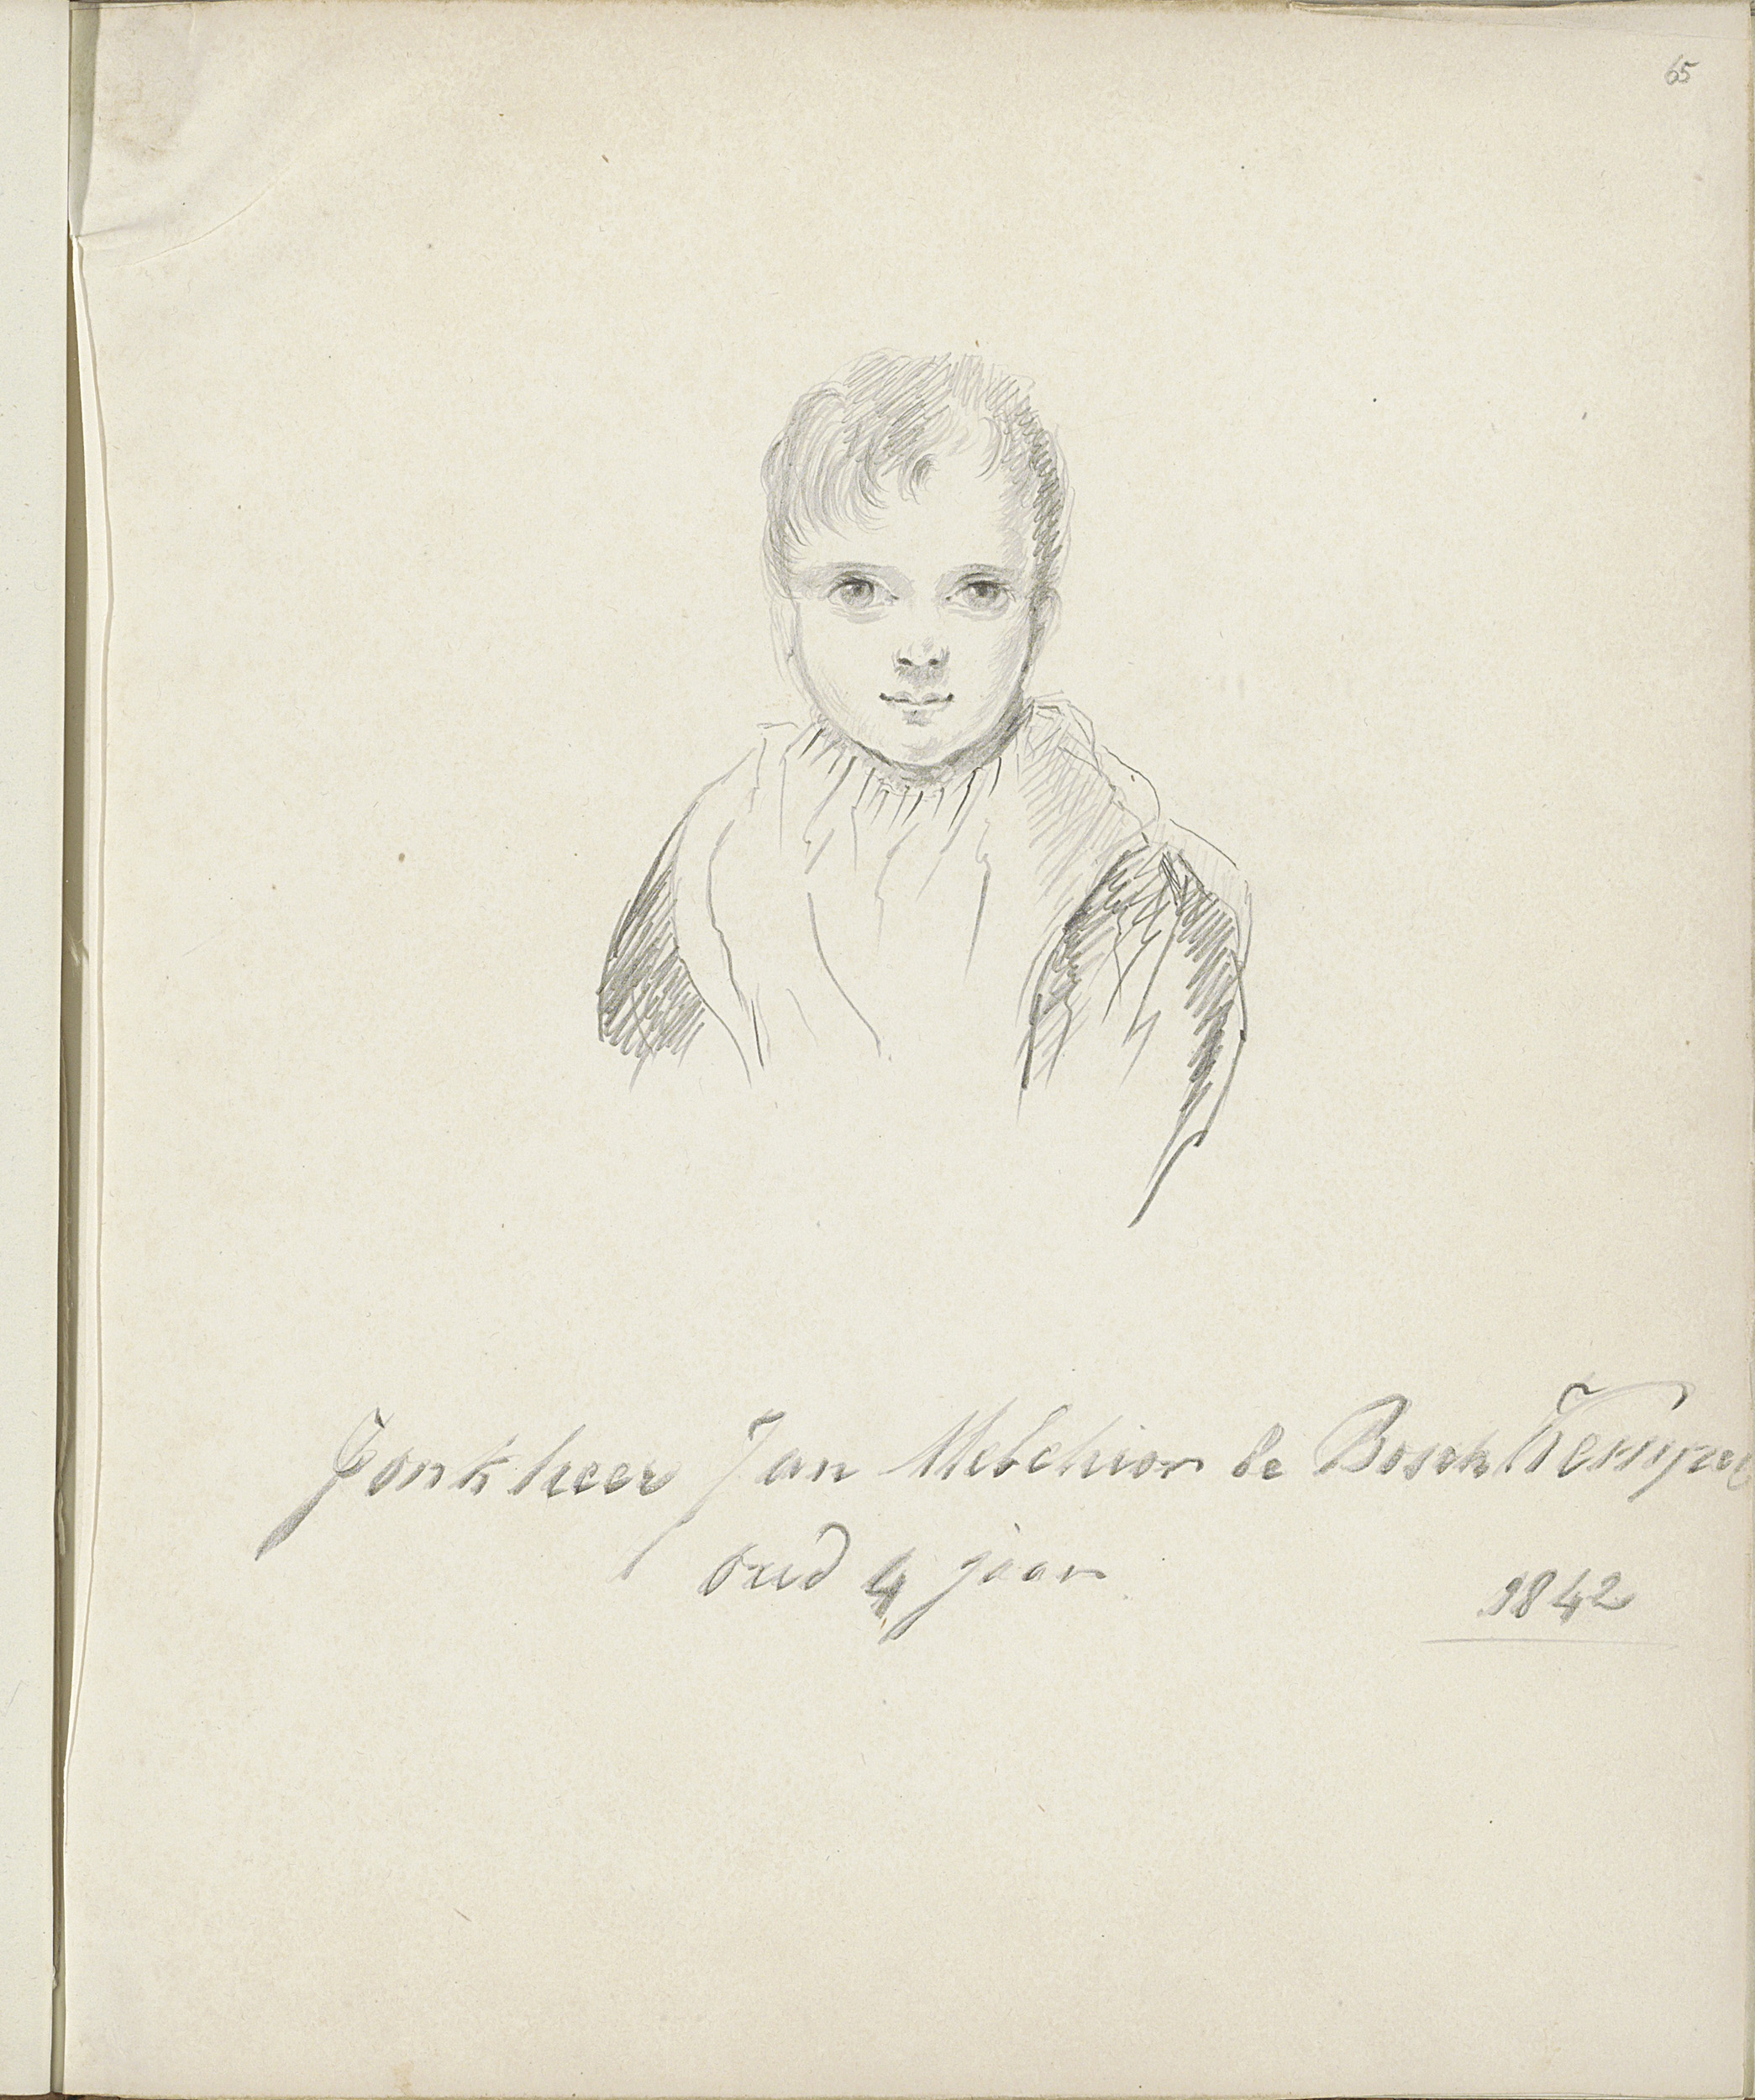 65
Jonkheer Jan Melchior de Bosch Kemper
oud 4 jaar
1842